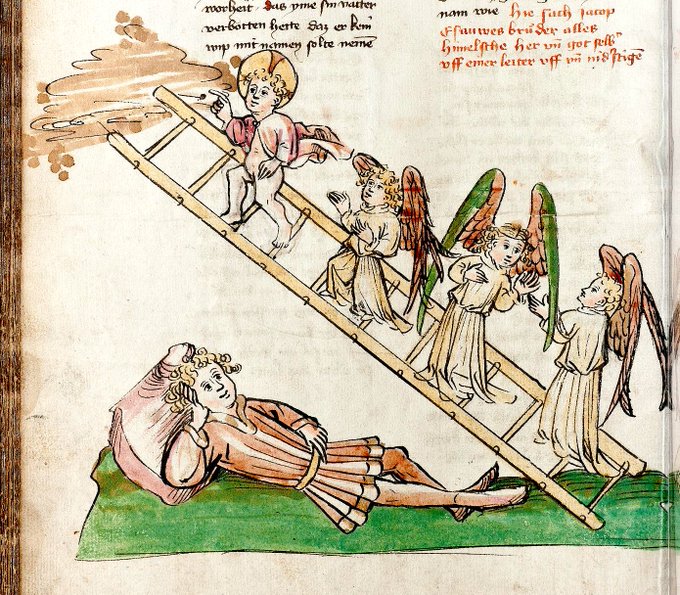 worheit das yme sin vatter
verbotten hette daz er kein
wip mit namen solte nemē
nam wie Hie sach jacop
Esauwes brůder alles
himelsche her vn̄ got selb
vff einer leiter vff vn̄ nidstigē